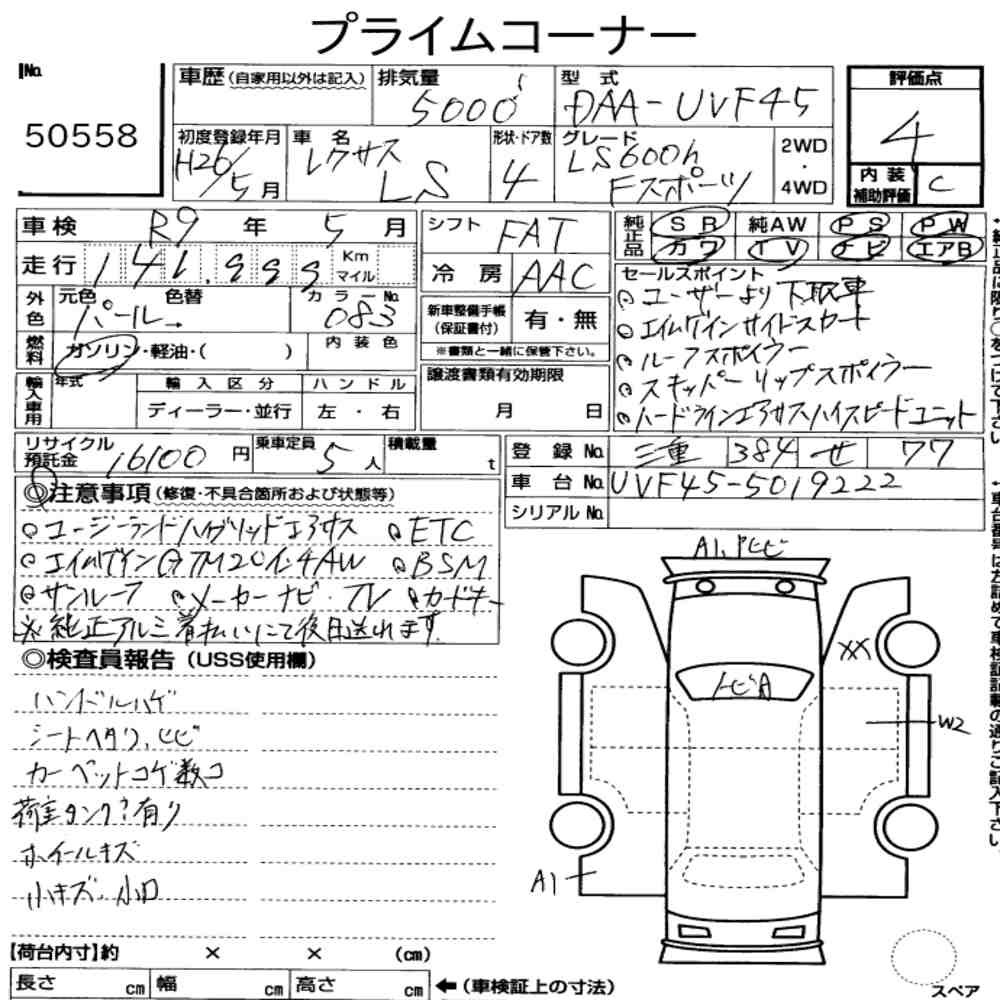 プライムコーナー
No.
50558
車歴 (自家用以外は記入)
排気量
5000
型式
DAA-UVF45
評価点
4
初度登録年月
H26/5月
車名
レクサス
LS
形状・ドア数
4
グレード
LS600h
Fスポーツ
2WD
・
4WD
内装補助評価
C
車検 R9年 5月
走行 141,999 Km マイル
外色
元色 色替
パール
カラーNo.
083
燃料
ガソリン・軽油・( )
内装色
輸入車用
年式
輸入区分
ディーラー・並行
ハンドル
左・右
シフト FAT
冷房 AAC
新車整備手帳(保証書付) 有・無
※書類と一緒に保管下さい。
譲渡書類有効期限
月 日
純正品
SR 純AW PS PW
カワ TV ナビ エアB
セールスポイント
ユーザーより下取車
エイムゲインサイドスカート
ルーフスポイラー
スキッパーリップスポイラー
ハードラインエアサスハイスピードユニット
リサイクル預託金 16100円
乗車定員 5人
積載量 t
登録No. 三重 384 せ 77
車台No. UVF45-5019222
シリアルNo.
◎注意事項 (修復・不具合箇所および状態等)
ETC
エイムゲイン G7M20インチAW
BSM
サンルーフ
メーカーナビ・TV
カードキー
※純正アルミ着払いにて後日送れます。
◎検査員報告 (USS使用欄)
ハンドルハゲ
シートヘタリ、ヒビ
カーペットコゲ数コ
荷室タンク?有り
ホイールキズ
小キズ、小凹
A1,トビヒビ
XX
トビA
W2
A1
【荷台内寸】約 × × (cm)
長さ cm 幅 cm 高さ cm
←(車検証上の寸法)
スペア